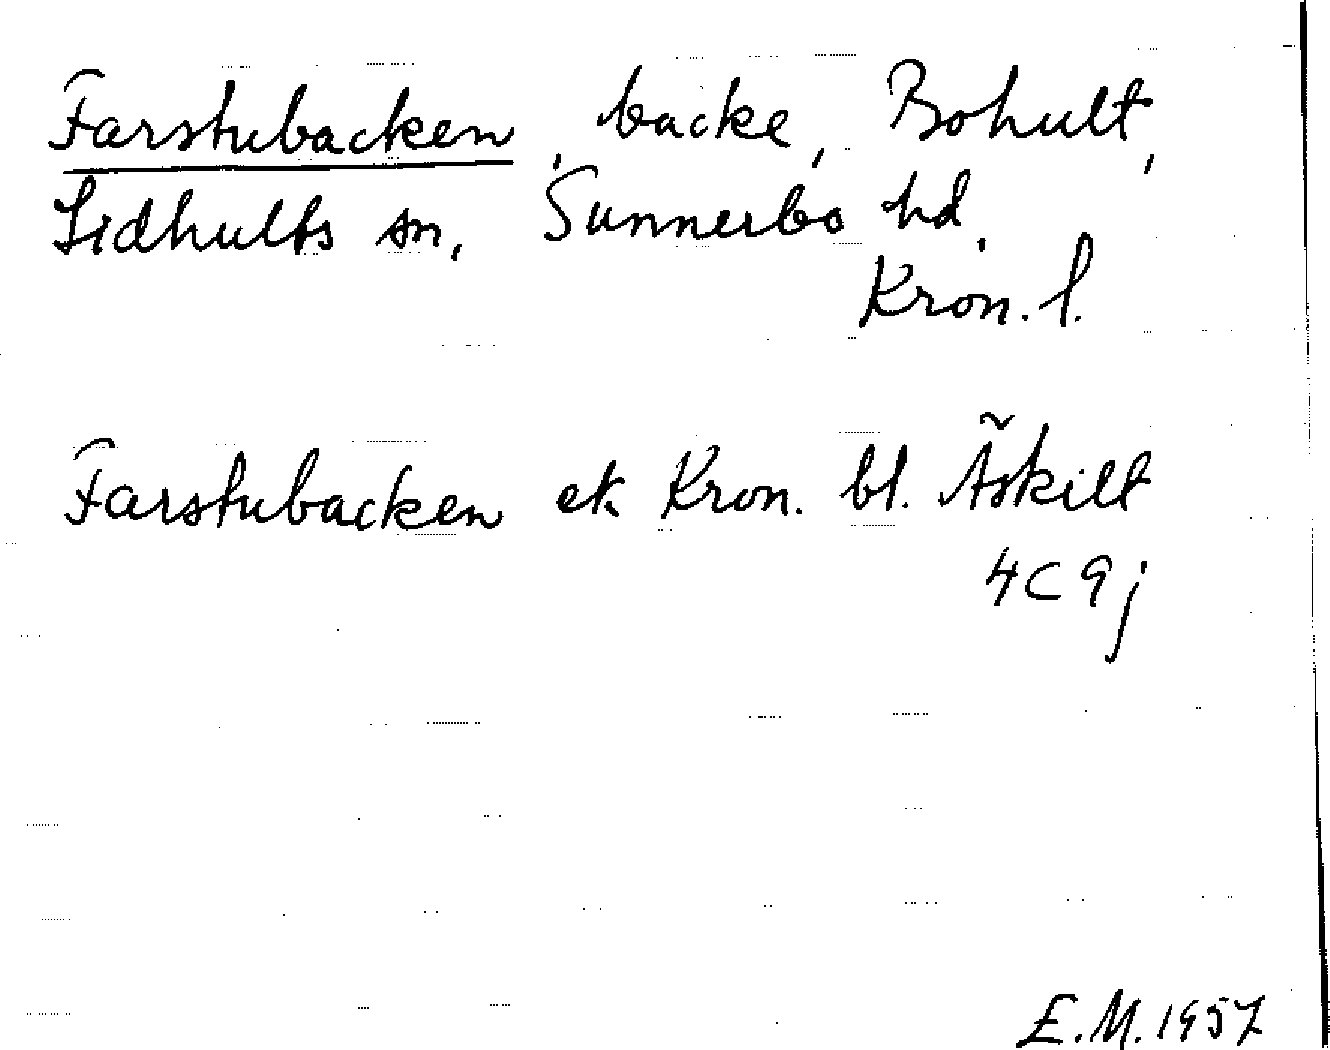 Farstubacken, backe, Bohult,
Lidhults sn, Sunnerbo hd.
Kron. l.
Farstubacken ek Kron. bl. Åskilt
4C 9j
E.M. 1957